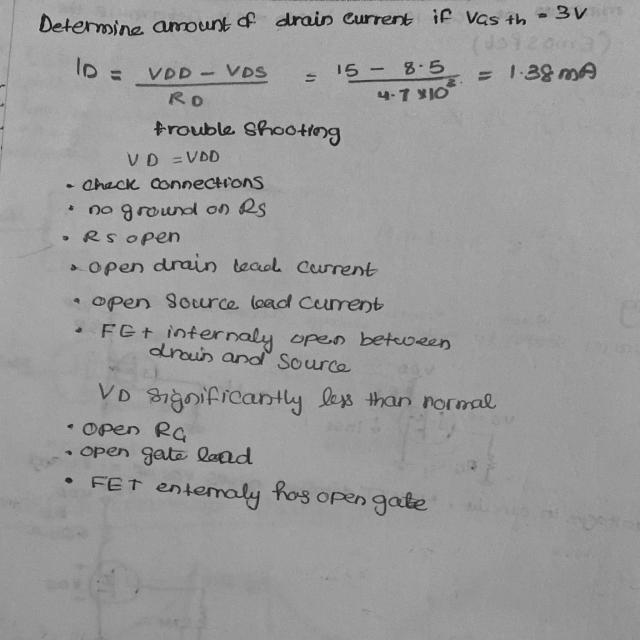 Determine amount of drain current if VGS th = 3V
ID = VDD - VDS / RD = 15 - 8.5 / 4.7 x10³ = 1.38 mA
trouble shooting
VD = VDD
• check connections
• no ground on RS
• RS open
• open drain lead current
• open source lead current
• FET internaly open between
drain and source
VD significantly less than normal
• open RG
• open gate lead
• FET enternaly has open gate